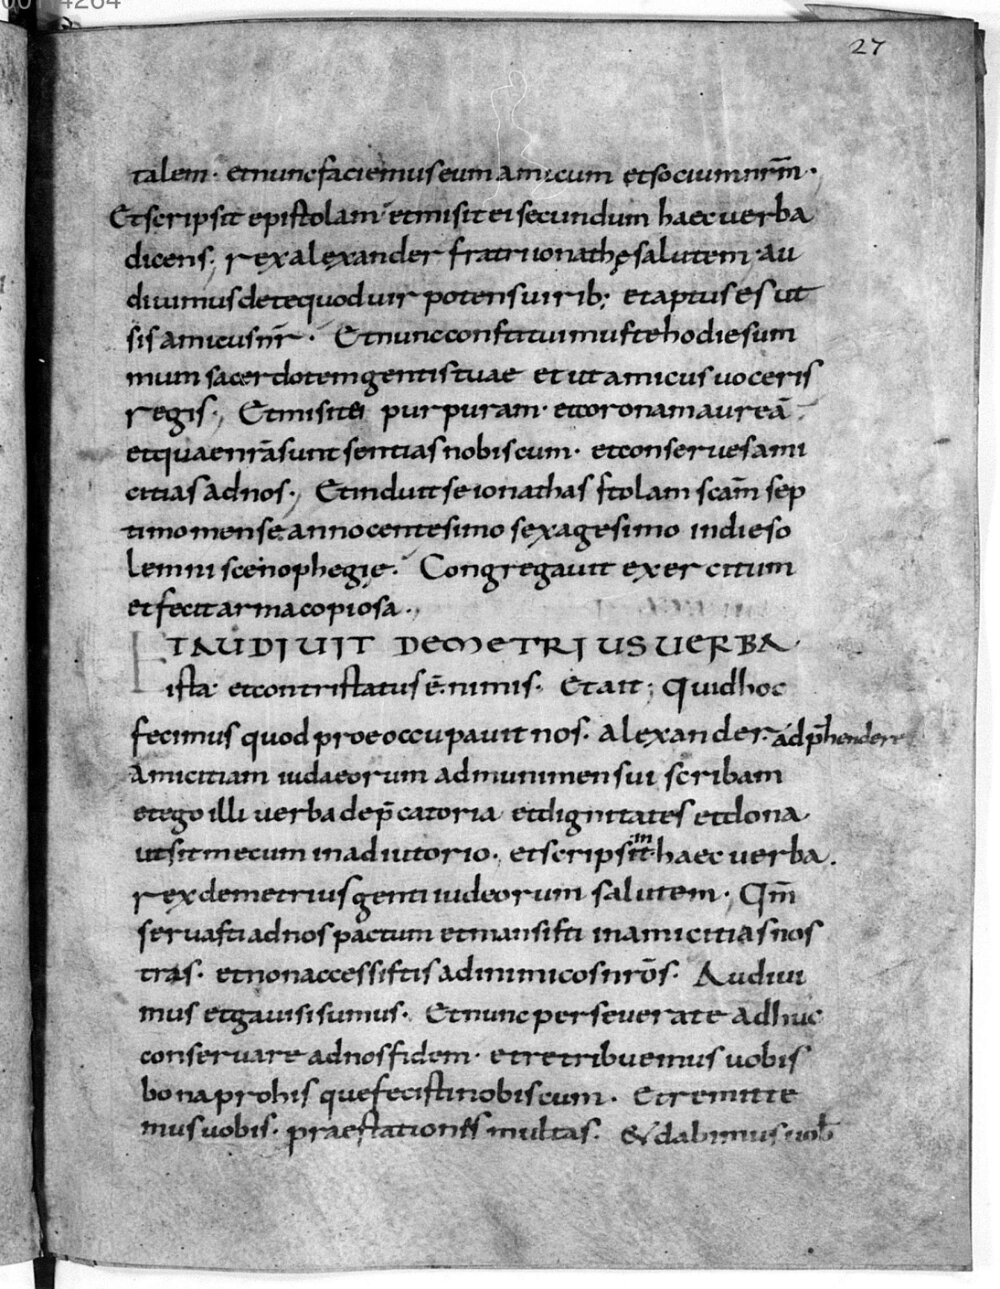 27
talem· et nunc faciemus eum amicum et socium nr̄m·
Et scripsit epistolam et misit ei secundum haec uerba
dicens; rex alexander fratri ionathę salutem· au
diuimus de te quod uir potens uirib; et aptus es ut
sis amicus nr̄· Et nunc constituimus te hodie sum
mum sacerdotem gentis tuae et ut amicus uoceris
regis·, Et misit ei purpuram· et coronam aureā·
et quae nr̄a sunt sentias nobiscum· et conserues ami
citias ad nos·, Et induit se ionathas stolam scām sep
timo mense anno centesimo sexagesimo in die so
lemni scenophegie· Congregauit exercitum
et fecit arma copiosa·,
ET AUDIUIT DEMETRIUS UERBA·
ista et contristatus ē· nimis· Et ait; Quid hoc
fecimus quod proeoccupauit nos· alexander· ad p̄hendere
amicitiam iudaeorum ad munimen sui scribam
et ego illi uerba dep̄catoria et dignitates et dona·
ut sit mecum in adiutorio·, et scripsit m haec uerba·
rex demetrius genti iudeorum salutem·, Qm̄
seruasti ad nos pactum et mansisti in amicitias nos
tras· et non accessistis ad inimicos nr̄os· Audiui
mus et gauisi sumus· Et nunc perseuerate adhuc
conseruare ad nos fidem· et retribuemus uobis
bona pro his que fecisti nobiscum· Et remitte
mus uobis· praestationes multas· & dabimus uob